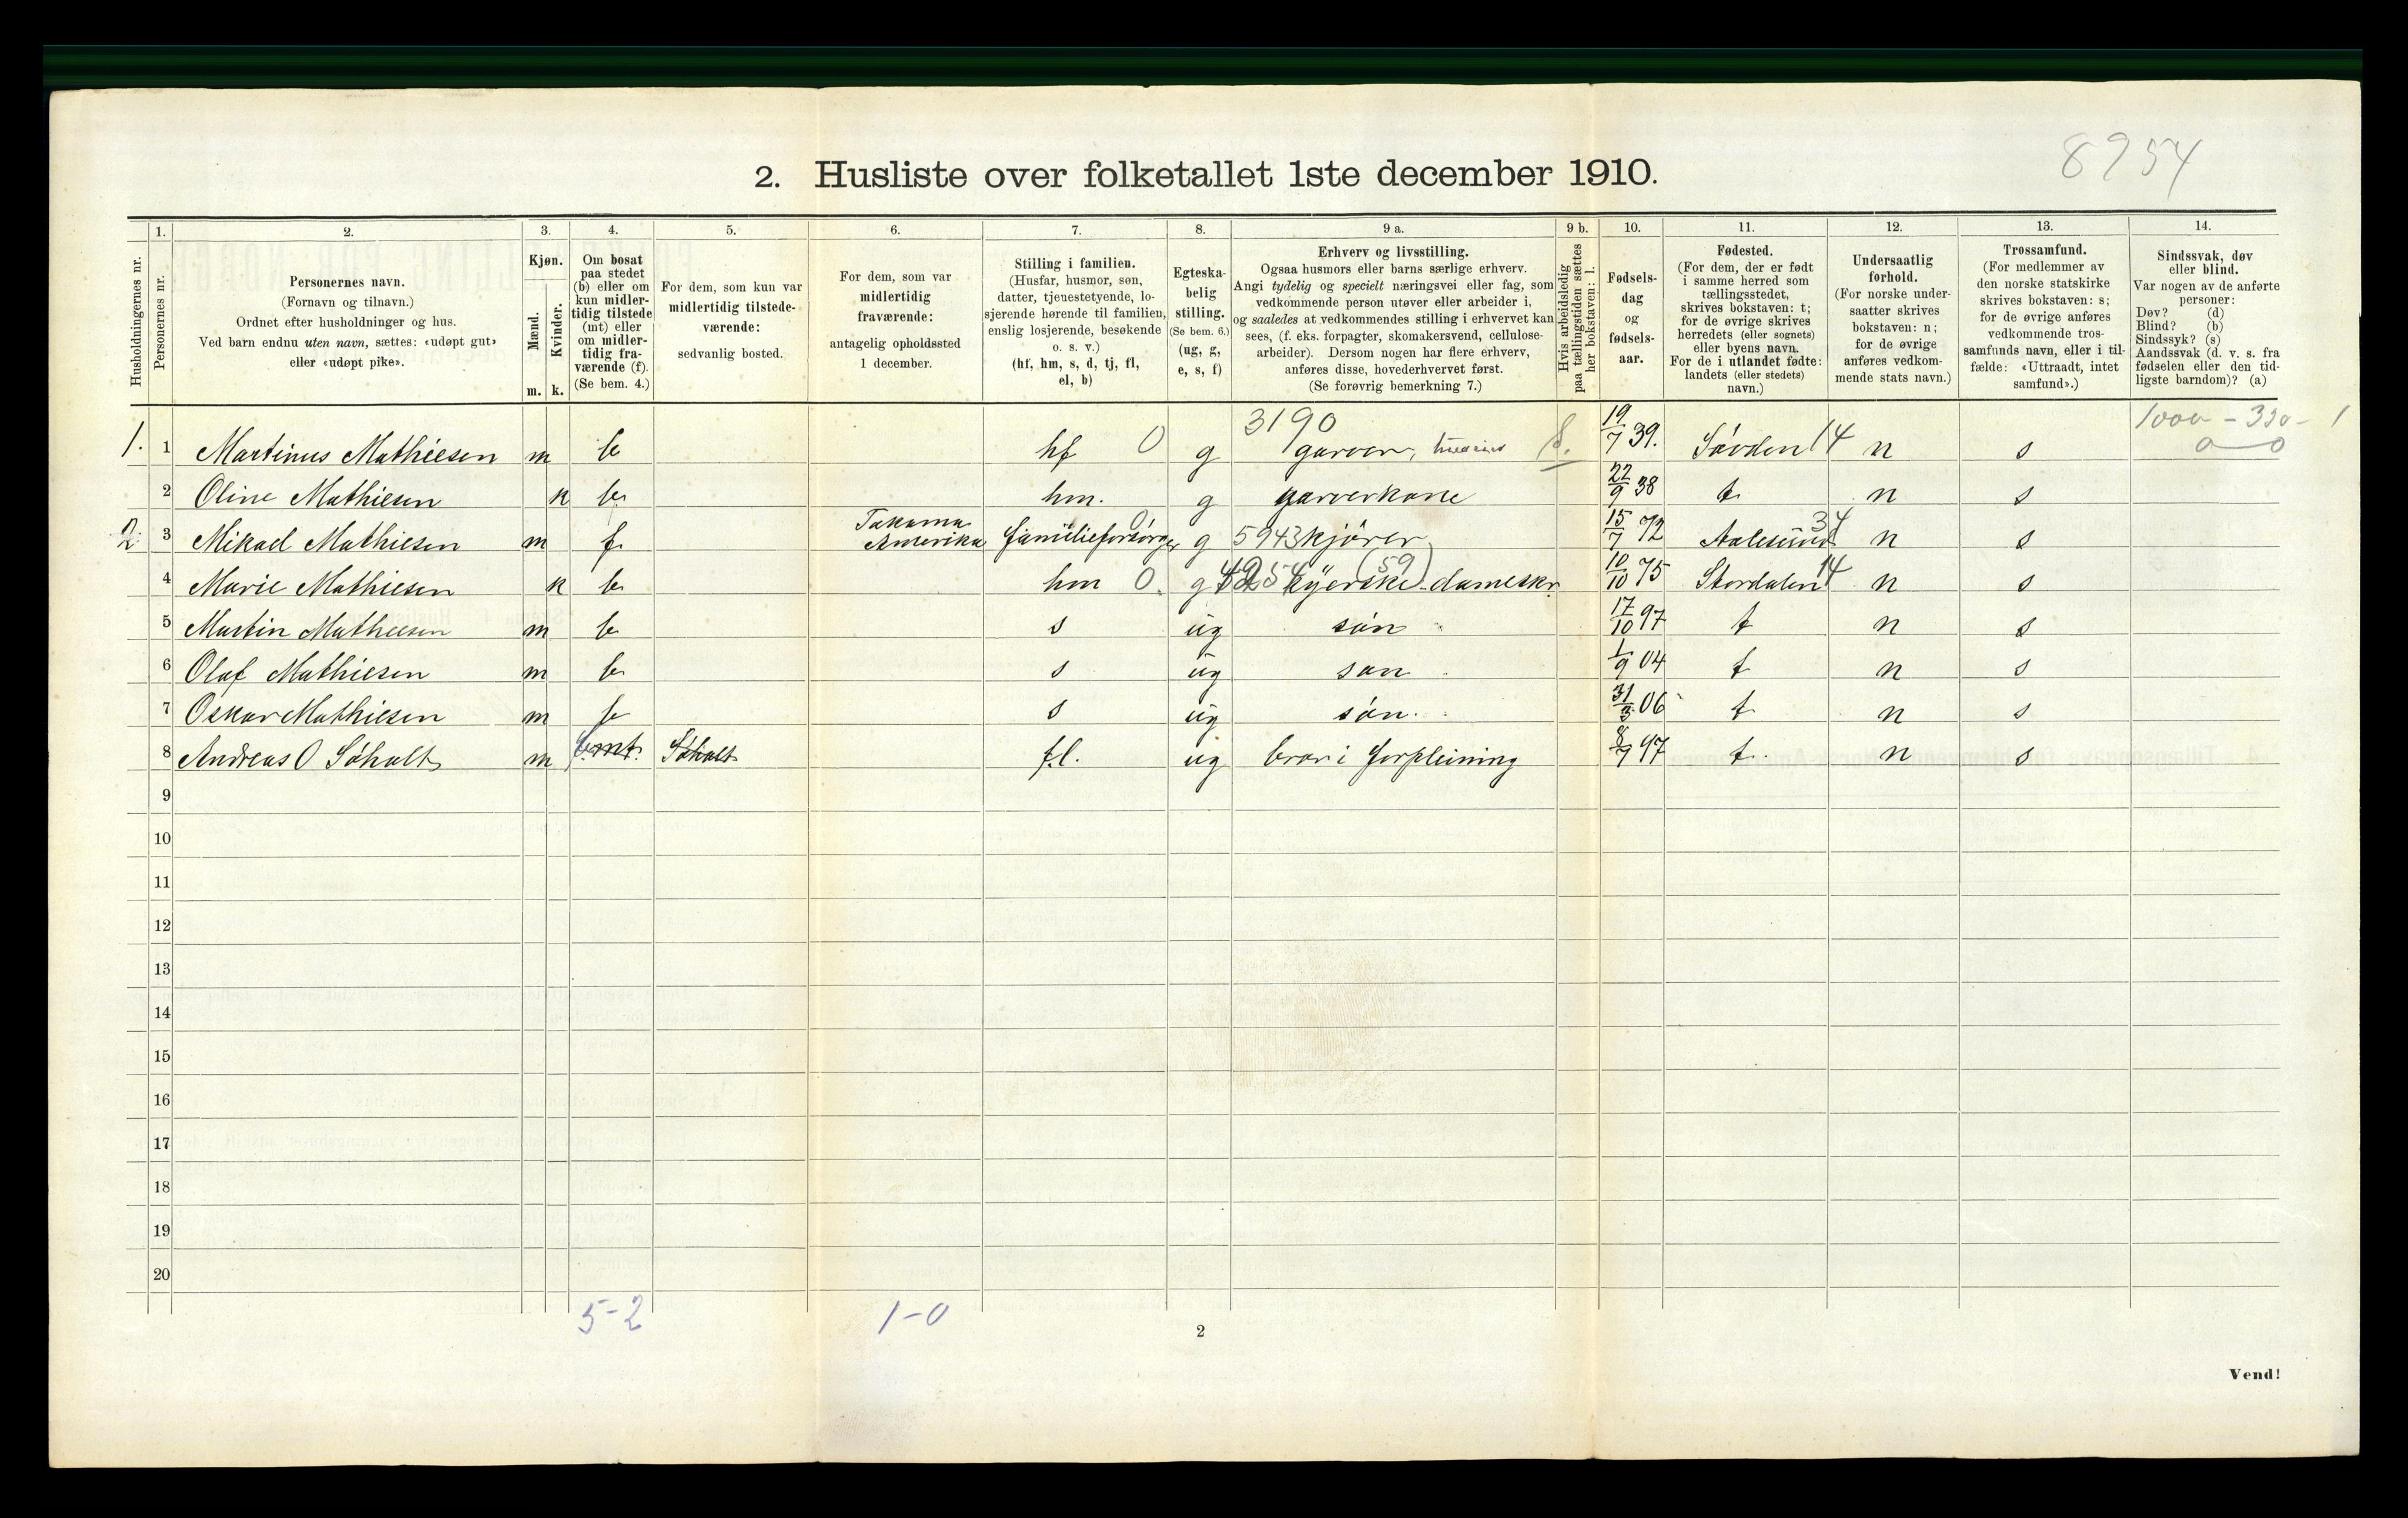 8954
2. Husliste over folketallet 1ste december 1910.
Husholdningernes nr.
1.
Personernes nr.
2.
Personernes navn.
(Fornavn og tilnavn.)
Ordnet efter husholdninger og hus.
Ved barn endnu uten navn, sættes: «udøpt gut»
eller «udøpt pike».
3.
Kjøn.
Mænd.
Kvinder.
m. k.
4.
Om bosat
paa stedet
(b) eller om
kun midler-
tidig tilstede
(mt) eller
om midler-
tidig fra-
værende (f).
(Se bem. 4.)
5.
For dem, som kun var
midlertidig tilstede-
værende:
sedvanlig bosted.
6.
For dem, som var
midlertidig
fraværende:
antagelig opholdssted
1 december.
7.
Stilling i familien.
(Husfar, husmor, søn,
datter, tjenestetyende, lo-
sjerende hørende til familien,
enslig losjerende, besøkende
o. s. v.)
(hf, hm, s, d, tj, fl,
el, b)
8.
Egteska-
belig
stilling.
(Se bem. 6.)
(ug, g,
e, s, f)
9 a.
Erhverv og livsstilling.
Ogsaa husmors eller barns særlige erhverv.
Angi tydelig og specielt næringsvei eller fag, som
vedkommende person utøver eller arbeider i,
og saaledes at vedkommendes stilling i erhvervet kan
sees, (f. eks. forpagter, skomakersvend, cellulose-
arbeider). Dersom nogen har flere erhverv,
anføres disse, hovederhvervet først.
(Se forøvrig bemerkning 7.)
9 b.
Hvis arbeidsledig
paa tællingstiden sættes
her bokstaven: l.
10.
Fødsels-
dag
og
fødsels-
aar.
11.
Fødested.
(For dem, der er født
i samme herred som
tællingsstedet,
skrives bokstaven: t;
for de øvrige skrives
herredets (eller sognets)
eller byens navn.
For de i utlandet fødte:
landets (eller stedets)
navn.)
12.
Undersaatlig
forhold.
(For norske under-
saatter skrives
bokstaven: n;
for de øvrige
anføres vedkom-
mende stats navn.)
13.
Trossamfund.
(For medlemmer av
den norske statskirke
skrives bokstaven: s;
for de øvrige anføres
vedkommende tros-
samfunds navn, eller i til-
fælde: «Uttraadt, intet
samfund».)
14.
Sindssvak, døv
eller blind.
Var nogen av de anførte
personer:
Døv? (d)
Blind? (b)
Sindssyk? (s)
Aandssvak (d. v. s. fra
fødselen eller den tid-
ligste barndom)? (a)
3190 1000 - 330 - 1
1. 1 Martinus Mathiesen m b hf 0 g garver, 19/7 39. Søvden 14 n s 0 0
2 Oline Mathiesen k b hm. g garverkone 22/9 38 t n s
2. 3 Mikael Mathiesen m f Takoma Amerika familieforsørger 0 g 5943 kjører 15/7 72 Aalesund 34 n s
4 Marie Mathiesen k b hm 0. g syerske dameskr. (59) 10/10 75 Stordalen 14 n s
5 Martin Mathiesen m b s ug søn 17/10 97 t n s
6 Olaf Mathiesen m b s ug søn 1/9 04 t n s
7 Oskar Mathiesen m b s ug søn. 31/3 06 t n s
8 Andreas O Søholt m mt. Søholt f.l. ug bror i forpleining 8/7 97 t. n s
9
10
11
12
13
14
15
16
17
18
19
20
5-2 1-0
2
Vend!